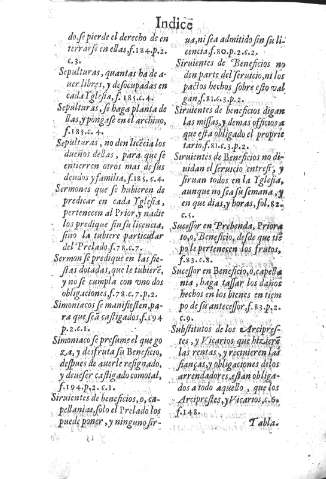 Indice
do, se pierde el derecho de en
terrarse en ellas. f.184.p.2.
c.3.
Sepulturas, quantas ha de a-
uer libres, y desocupadas en
cada Yglesia, f. 183. c.4.
Sepulturas, se haga planta de
llas, y pongase en el archiuo,
f.183.c.4.
Sepulturas, no den licēcia los
dueños dellas, para que se
entierren otros mas de sus
deudos y familia. f.185.c.4
Sermones que se hubieren de
predicar en cada Yglesia,
pertenecen al Prior, y nadie
los predique sin su licencia,
sino la tubiere particular
del Prelado. f.78.c.7.
Sermon se predique en las fie-
stas dotadas, que le tubierē,
y no se cumpla con vno dos
obligaciones. f.78.c.7.p.2.
Simoniacos se manifiesten, pa-
ra que seā castigados, f.194
p.2.c.1.
Simoniaco se presume el que go
za, y desfruta su Beneficio,
despues de auerle resignado,
y deue ser castigado como tal,
f.194.p.2.c.3.
Siruientes de beneficios, o, ca-
pellanias, solo el Prelado los
puede poner, y ninguno sir-
ua, ni sea admitido sin su li-
cencia. f.80.p.2.c.2.
Siruientes de Beneficios no
den parte del seruicio, ni los
pactos hechos sobre esto val
gan. f.81.c.3.p.2.
Siruientes de beneficios digan
las missas, y demas officios a
que esta obligado el proprie-
tario. f.81.c.3.p.2.
Siruientes de Beneficios no di-
uidan el seruicio entresi, y
siruan todos en la Yglesia,
aunque no sea su semana, y
en que dias, y horas, fol. 82.
c.5.
Sucessor en Prebenda, Priora
to, o, Beneficio, desde que tiē
po le pertenecen los frutos,
f.83.c.8.
Sucessor en Beneficio, o, capella
nia, haga tassar los daños
hechos en los bienes en tiem
po de su antecessor. f.83.p.2.
c.9.
Substitutos de los Arcipres-
tes, y Vicarios que hizierē
las rentas, y recivieren las
fianças, y obligaciones de los
arrendadores, estan obliga-
dos a todo aquello, que los
Arciprestes, y Vicarios, c.6.
f.148.
Tabla.